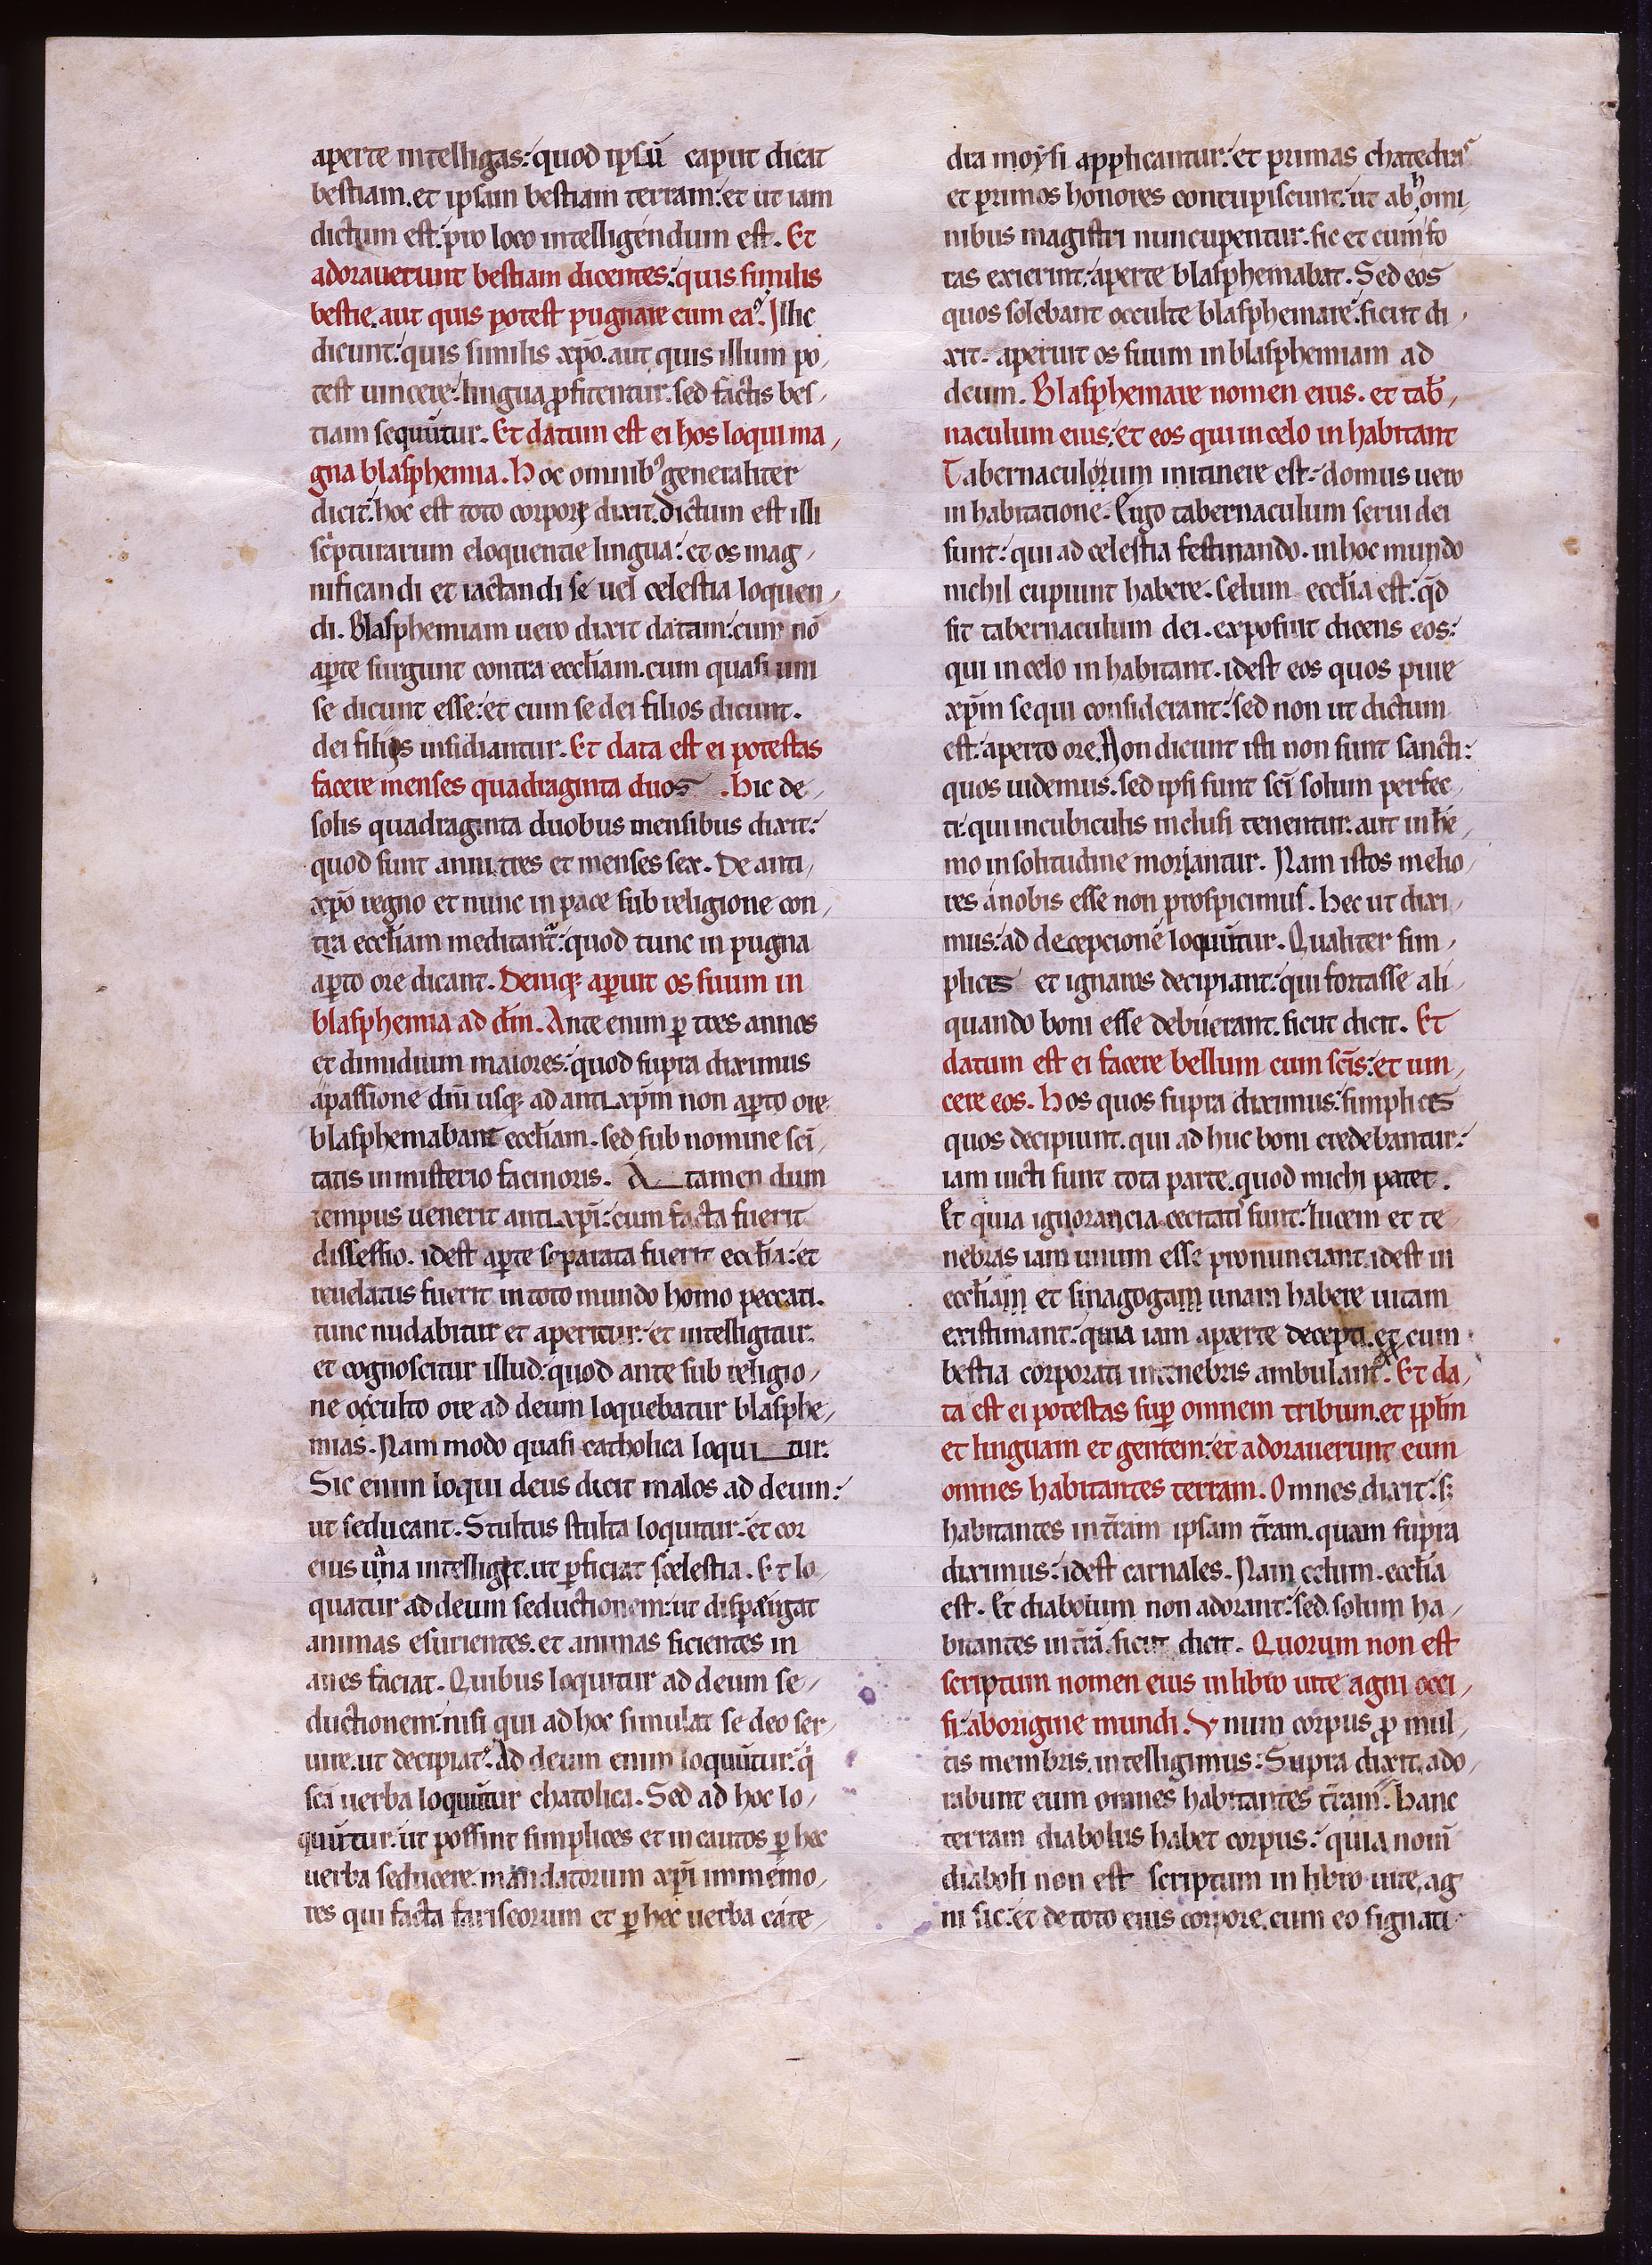 aperte intelligas: quod ipsū caput dicat
bestiam. et ipsam bestiam terram: et ut iam
dictum est. pro loco intelligendum est. Et
adorauerunt bestiam dicentes: quis similis
bestie. aut quis potest pugnare cum ea? Illic
dicunt: quis similis xp̄o. aut quis illum po/
test uincere: lingua ꝓfitentur. sed factis bes/
tiam sequūtur. Et datum est ei hos loqui ma/
gna blasphemia. Hoc omnibꝰ generaliter
dicit: hoc est toto corpore dixit. dictum est illi
sc̃pturarum eloquentie lingua: et os mag/
nificandi et iactandi se uel celestia loquen/
di. Blasphemiam uero dixit datam: cum nō
aꝑte surgunt contra eccl̄iam. cum quasi um
se dicunt esse: et cum se dei filios dicunt.
dei filios insidiantur. Et data est ei potestas
facere menses quadraginta duos. Hic de/
solis quadraginta duobus mensibus dixit:
quod sunt anni tres et menses sex. De anti/
xp̄o regno et nunc in pace sub religione con/
tra eccl̄iam meditant᷑: quod tunc in pugna
aꝑto ore dicant. Deniqꝫ aꝑuit os suum in
blasphemia ad dm̄. Ante enim ꝑ tres annos
et dimidium maiores: quod supra diximus
apassione dn̄i usqꝫ ad antixp̄m non aꝑto ore
blasphemabant eccl̄iam. sed sub nomine sci/
tatis in misterio facinoris. A tamen dum
tempus uenerit antixp̄i: cum facta fuerit
dissessio. idest aꝑte separata fuerit eccl̄ia: et
reuelatus fuerit in toto mundo homo peccati.
tunc nudabitur et aperitur: et intelligitur.
et cognoscitur illud: quod ante sub religio/
ne occulto ore ad deum loquebatur blasphe/
mias. Nam modo quasi catholica loqui tur.
Sic enim loqui deus dicit malos ad deum:
ut seducant. Stultus stulta loquitur: et cor
eius uana intelligit. ut ꝑficiat scelestia. Et lo/
quatur ad deum seductionem: ut dispergat
animas esurientes. et animas sicientes in
anes faciat. Quibus loquitur ad deum se/
ductionem: nisi qui ad hoc simulat se deo ser/
uire. ut decipiat. Ad deum enim loquūtur: q̇
scā uerba loquūtur chatolica. Sed ad hoc lo/
quūtur. ut possint simplices et incautos ꝑ hec
uerba seducere. mandatorum xp̄i immemo/
res qui facta fariseorum et ꝑ hec uerba cate/
dra moysi applicantur: et primas chatedras
et primos honores concupiscunt: ut ab homi/
nibus magistri nuncupentur. sic et cum fo
ras exierint: aperte blasphemabat. Sed eos
quos solebant occulte blasphemare: sicut di/
xit. aperuit os suum in blasphemiam ad
deum. Blasphemare nomen eius. et tab̄/
naculum eius: et eos qui in celo in habitant
Tabernaculorum initinere est: domus uero
in habitatione. Ergo tabernaculum serui dei
sunt: qui ad celestia festinando. in hoc mundo
nichil cupiunt habere. Celum eccl̄ia est: qd̄
sit tabernaculum dei. exposuit dicens eos:
qui in celo in habitant. idest eos quos pure
xp̄m sequi considerant: sed non ut dictum
est: aperto ore. Non dicunt isti non sunt sancti:
quos uidemus. sed ipsi sunt sc̄i solum perfec/
ti: qui incubiculis inclusi tenentur. aut in he/
mo in solitudine moriantur. Nam istos melio/
res anobis esse non prospicimus. Hec ut dixi/
mus: ad decepcionē loquūtur. Qualiter sim/
plices et ignaros decipiant: qui fortasse ali/
quando boni esse debuerant. sicut dicit. Et
datum est ei facere bellum cum sc̄is: et uin/
cere eos. Hos quos supra diximus: simplices
quos decipiunt. qui ad huc boni credebantur:
iam uicti sunt tota parte. quod michi patet.
Et quia ignorancia cecitatis sunt: lucem et te
nebras iam unum esse pronunciant. idest in
eccl̄iam et sinagogam unam habere uitam
existimant: quia iam aperte decepti. et cum
bestia corporati intenebris ambulant. Et da/
ta est ei potestas suꝑ omnem tribum. et ppl̄m
et linguam et gentem: et adorauerunt eum
omnes habitantes terram. Omnes dixit: sꝫ
habitantes in t̄ram ipsam t̄ram. quam supra
diximus: idest carnales. Nam celum. eccl̄ia
est. Et diabolum non adorant: sed solum ha/
bitantes in t̄rā. sicut dicit. Quorum non est
scriptum nomen eius in libro uite agni occi/
si: aborigine mundi. Vnum corpus ꝑ mul/
tis membris intelligimus: Supra dixit. ado/
rabunt eum omnes habitantes t̄ram. Hanc
terram diabolus habet corpus: quia nom̄
diaboli non est scriptum in libro uite. ag
ni sic: et de toto eius corpore. cum eo signati